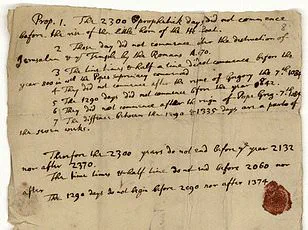 Prop. 1. The 2300 prophetick days did not commence
before the rise of the little horn of the He Goat.
2 Those day did not commence after the destruction of
Jerusalem & ye Temple by the Romans A. 70.
3 The time times & half a time did not commence before the
year 800 in wch the Popes supremacy commenced
4 They did not commence after the reigne of Gregory the 7th 1084
5 The 1290 days did not commence before the year 842.
6 They did not commence after the reign of Pope Greg. 7th 1084
7 The difference between the 1290 & 1335 days are a parts of
the seven weeks.
Therfore the 2300 years do not end before ye year 2132
nor after 2370.
The time times & half time do not end before 2060 nor
after
The 1290 days do not begin before 2090 nor after 1374